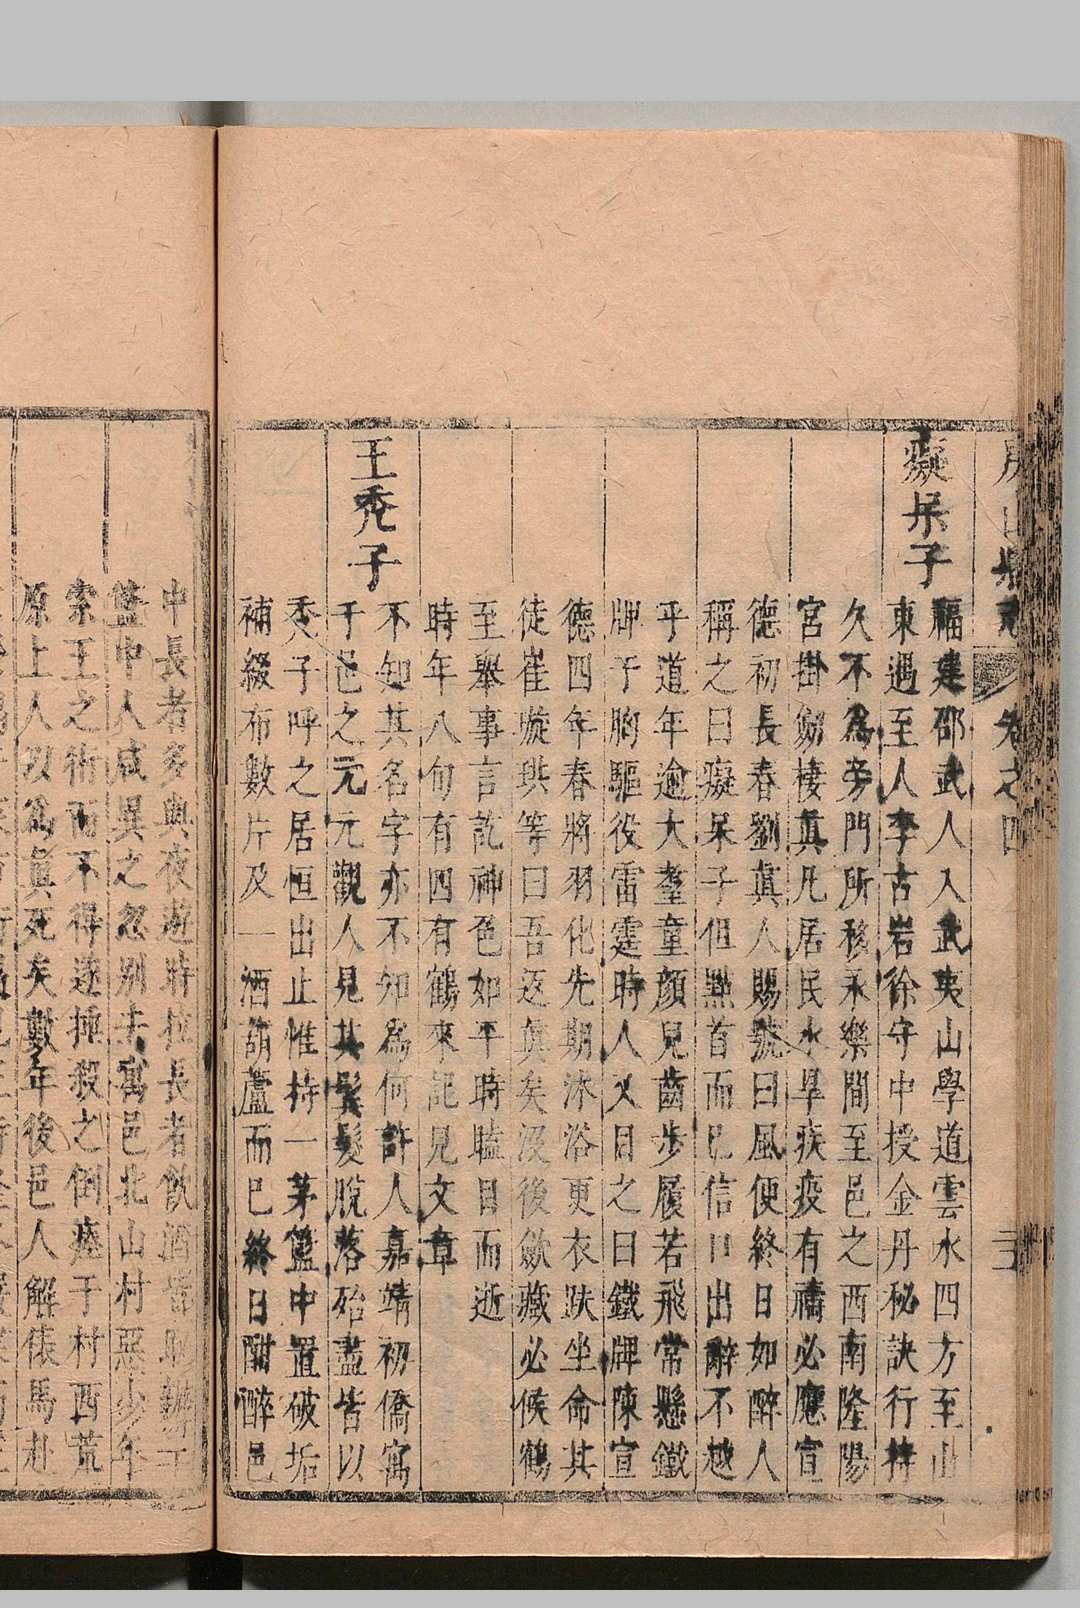 房山縣志 卷之四 三十
癡呆子
福建邵武人入武夷山學道雲水四方至山
東遇至人李古岩徐守中授金丹秘訣行持
久不為旁門所移永樂間至邑之西南隆陽
宮掛劒棲真凡居民水旱疾疫有禱必應宣
德初長春劉真人賜號曰風便終日如醉人
稱之曰癡呆子但點首而已信口出辭不越
乎道年逾大耋童顏兒齒步履若飛常懸鐵
牌于胸驅役雷霆時人又目之曰鐵牌陳宣
德四年春將羽化先期沐浴更衣趺坐命其
徒崔璇珙等曰吾返真矣沒後歛藏必候鶴
至舉事言訖神色如平時瞌目而逝
時年八旬有四有鶴來記見文章
王禿子
不知其名字亦不知為何許人嘉靖初僑寓
于邑之元元觀人見其鬓髮脫落殆盡皆以
禿子呼之居恒出止惟持一茅籃中置破垢
補綴布數片及一酒葫蘆而已終日酣醉邑
中長者多與夜遊時拉長者飲酒皆取辦于
籃中人咸異之忽别去寓邑北山村惡少年
索王之術而不得遂捶殺之倒瘞于村西荒
原上人以為真死矣數年後邑人解俵馬赴